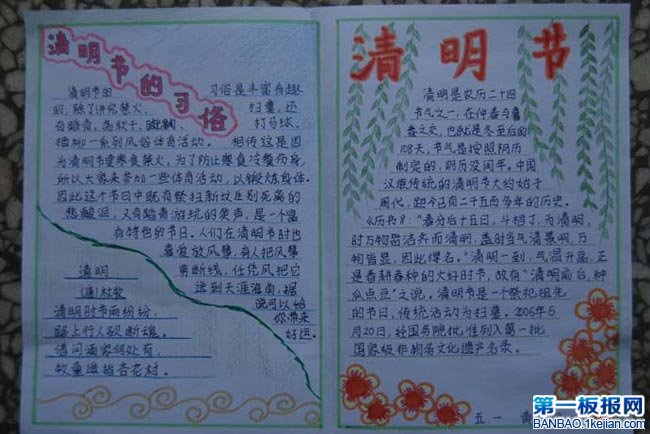 清明节的习俗
清明节的 习俗是丰富有趣
的，除了讲究禁火、 扫墓，还
有踏青、荡秋千、蹴鞠、 打马球、
插柳一系列风俗体育活动。 相传这是因
为清明节要寒食禁火，为了防止寒食冷餐伤身，
所以大家来参加一些体育活动，以锻炼身体。
因此这个节日中既有祭扫新坟生别死离的
悲酸泪，又有踏青游玩的笑声，是一个富
有特色的节日。人们在清明节时也
喜爱放风筝，有人把风筝
剪断线，任凭风把它
送到天涯海南，据
说可以给
你带来
好运。
清明
(唐)杜牧
清明时节雨纷纷，
路上行人欲断魂。
借问酒家何处有，
牧童遥指杏花村。
清明节
清明是农历二十四
节气之一，在仲春与暮
春之交，也就是冬至后的
108天，节气是按照阴历
制定的，阴历没闰年。中国
汉族传统的清明节大约始于
周代，距今已有二千五百多年的历史。
《历书》：“春分后十五日，斗指丁，为清明，
时万物皆洁齐而清明，盖时当气清景明，万
物皆显，因此得名。”清明一到，气温升高，正
是春耕春种的大好时节，故有“清明前后，种
瓜点豆”之说。清明节是一个祭祀祖先
的节日，传统活动为扫墓。2006年5
月20日，经国务院批准列入第一批
国家级非物务文化遗产名录。
五一 黄
第一板报网
BANBAO.1kejian.com